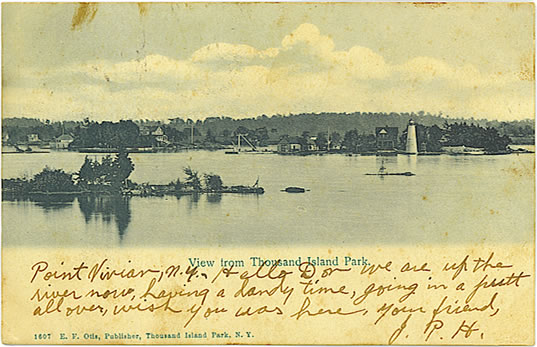 View from Thousand Island Park.
Point Vivian, N.Y. - Hello Don we are up the
river now, having a dandy time, going in a putt
all over, wish you was here, Your friend,
J. P. H.
1607 E. F. Otis, Publisher, Thousand Island Park, N. Y.